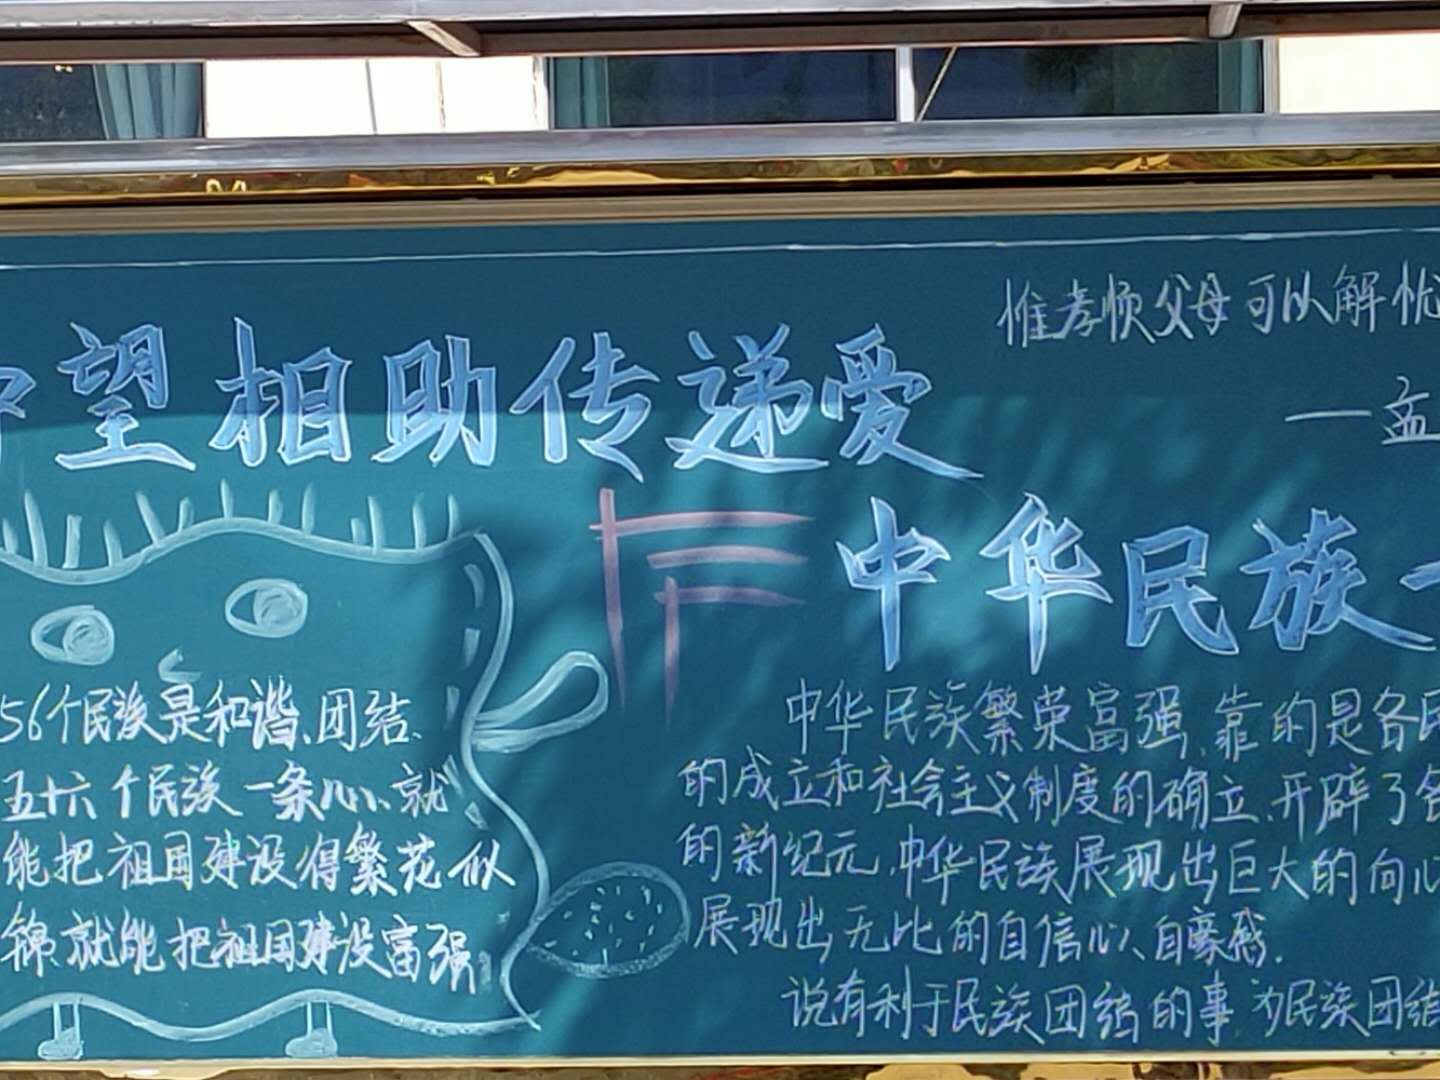 惟孝顺父母可以解忧
望相助传递爱
——孟
中华民族
56个民族是和谐、团结、
五十六个民族一条心、就
能把祖国建设得繁花似
锦、就能把祖国建设富强
中华民族繁荣富强、靠的是各民
的成立和社会主义制度的确立、开辟了各
的新纪元、中华民族展现出巨大的向心
展现出无比的自信心、自豪感.
说有利于民族团结的事、为民族团结